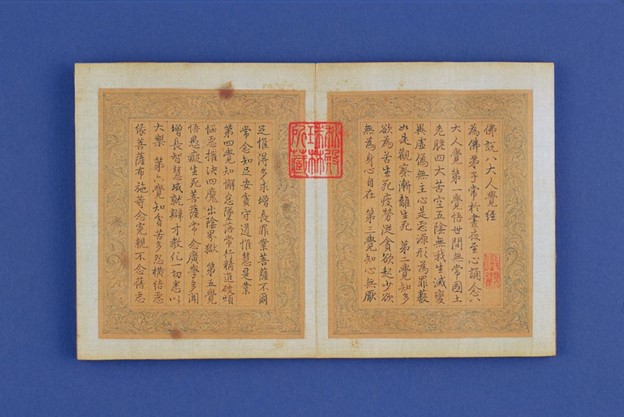 佛說八大人覺經
為佛弟子常於晝夜至心誦念八
大人覺 第一覺悟世間無常國土
危脆四大苦空五陰無我生滅變
異虛偽無主心是惡源形為罪藪
如是觀察漸離生死 第二覺知多
欲為苦生死疲勞從貪欲起少欲
無為身心自在 第三覺知心無厭
秘殿
珠林
所藏
足惟得多求增長罪業菩薩不爾
常念知足安貧守道惟慧是業
第四覺知懈怠墜落常行精進破煩
惱惡摧決四魔出陰界獄 第五覺
悟愚癡生死菩薩常念廣學多聞
增長智慧成就辯才教化一切悉以
大樂 第六覺知貧苦多怨橫結惡
緣菩薩布施等念冤親不念舊惡